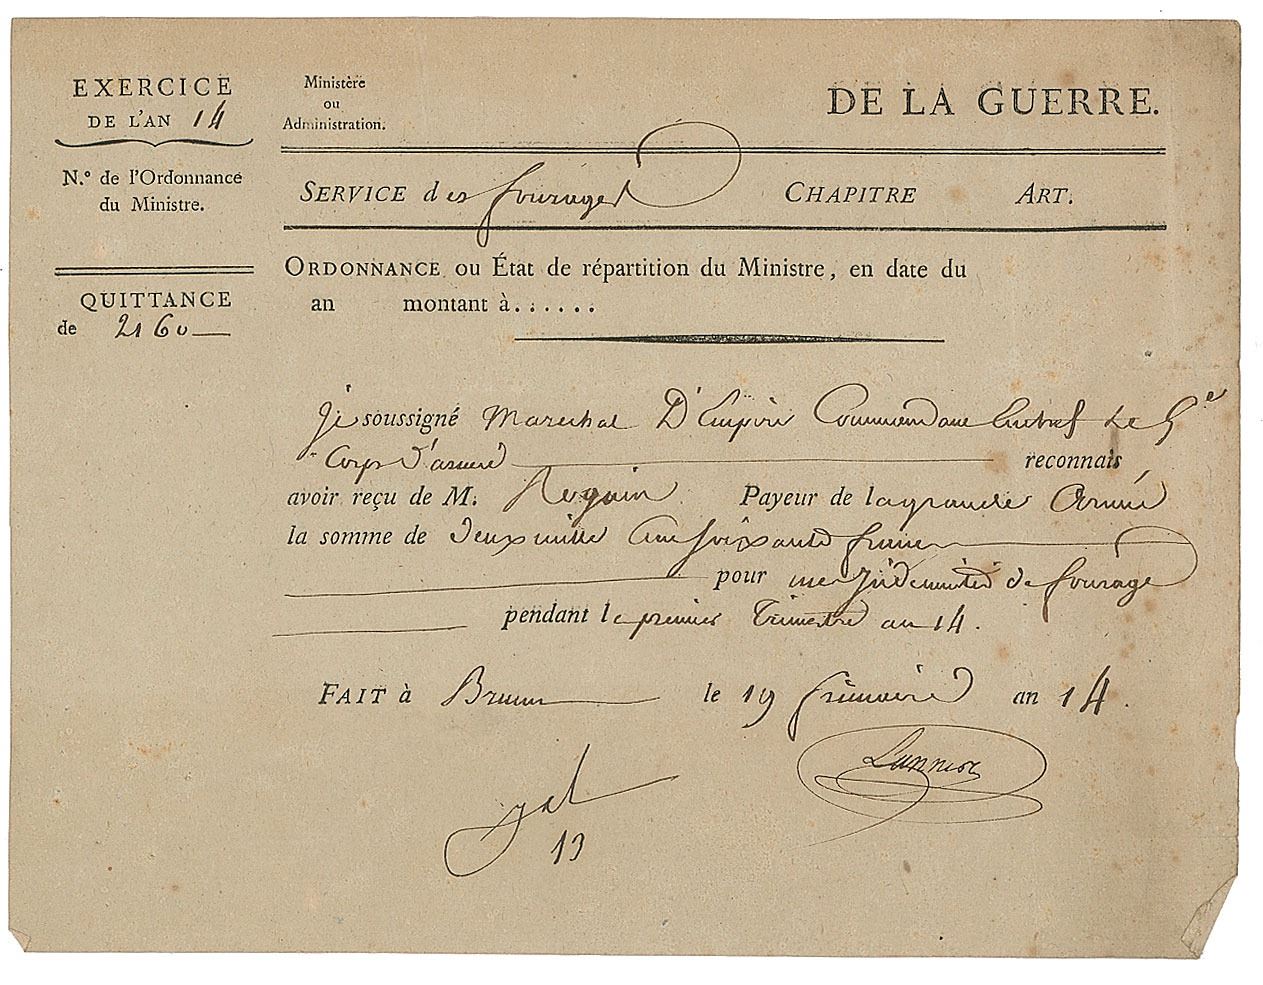 EXERCICE
DE L'AN 14
N.º de l'Ordonnance
du Ministre.
QUITTANCE
de 2160
Ministère
ou
Administration.
DE LA GUERRE.
SERVICE des fourages CHAPITRE ART.
ORDONNANCE ou État de répartition du Ministre, en date du
an montant à......
Je soussigné Marechal D'Empire Commandant en chef le 5e
Corps d'armée reconnais
avoir reçu de M. Roguin Payeur de la grande Armée
la somme de deux mille cent soixante francs
pour mes Indemnités de fourage
pendant le premier Trimestre an 14.
FAIT à Brunn le 19 frimaire an 14.
Lannes
13